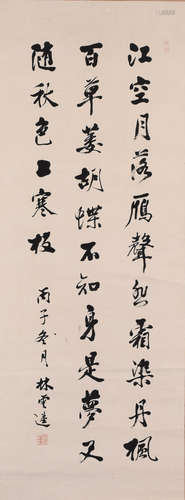 江空月落雁聲悲霜染丹楓
百草萎胡蝶不知身是夢又
隨秋色上寒枝
丙子冬月 林雲達